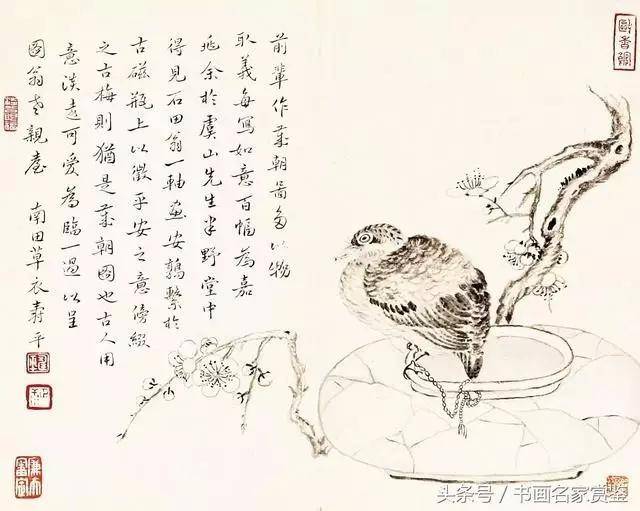 前輩作歲朝圖多以物
取義每寫如意百幅為嘉
兆余於虞山先生半野堂中
得見石田翁一軸畫安鶉繫於
古磁瓶上以徵平安之意傍綴
之古梅則猶是歲朝圖也古人用
意淡遠可愛為臨一過以呈
圖翁老親臺 南田草衣壽平
头条号 / 书画名家赏鉴